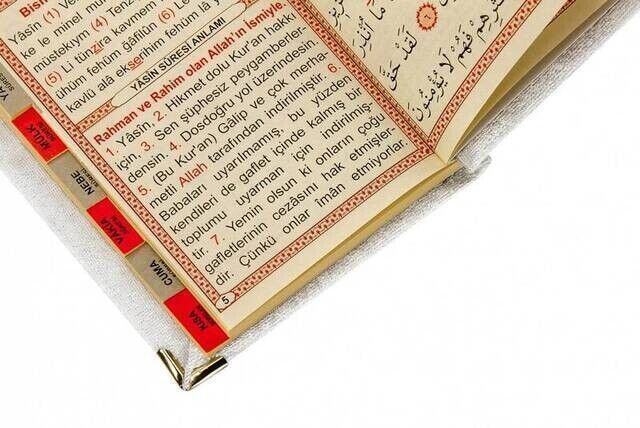 Bismi
Yâsîn (1) Ve
ke le minel mü
müstekıym (4) Tenz
(5) Li tünzira kavmem
ühüm fehüm ğâfilûn (6) Le
kavlü alâ ekserihim fehüm lâ y
YÂSİN SÛRESİ ANLAMI
Rahman ve Rahim olan Allah'ın İsmiyle
1. Yâsîn, 2. Hikmet dolu Kur'an hakkı
için. 3. Sen şüphesiz peygamberler-
densin. 4. Dosdoğru yol üzerindesin.
5. (Bu Kur'an) Gâlip ve çok merha-
metli Allah tarafından indirilmiştir. 6.
Babaları uyarılmamış, bu yüzden
kendileri de gaflet içinde kalmış bir
toplumu uyarman için indirilmiş-
tir. 7. Yemin olsun ki onların çoğu
gafletlerinin cezâsını hak etmişler-
dir. Çünkü onlar îmân etmiyorlar.
5
لَقَدْ حَقَّ
فَهُمْ لَا يُؤْمِنُونَ
MÜLK
NEBE
VAKIA
CUMA
KISA